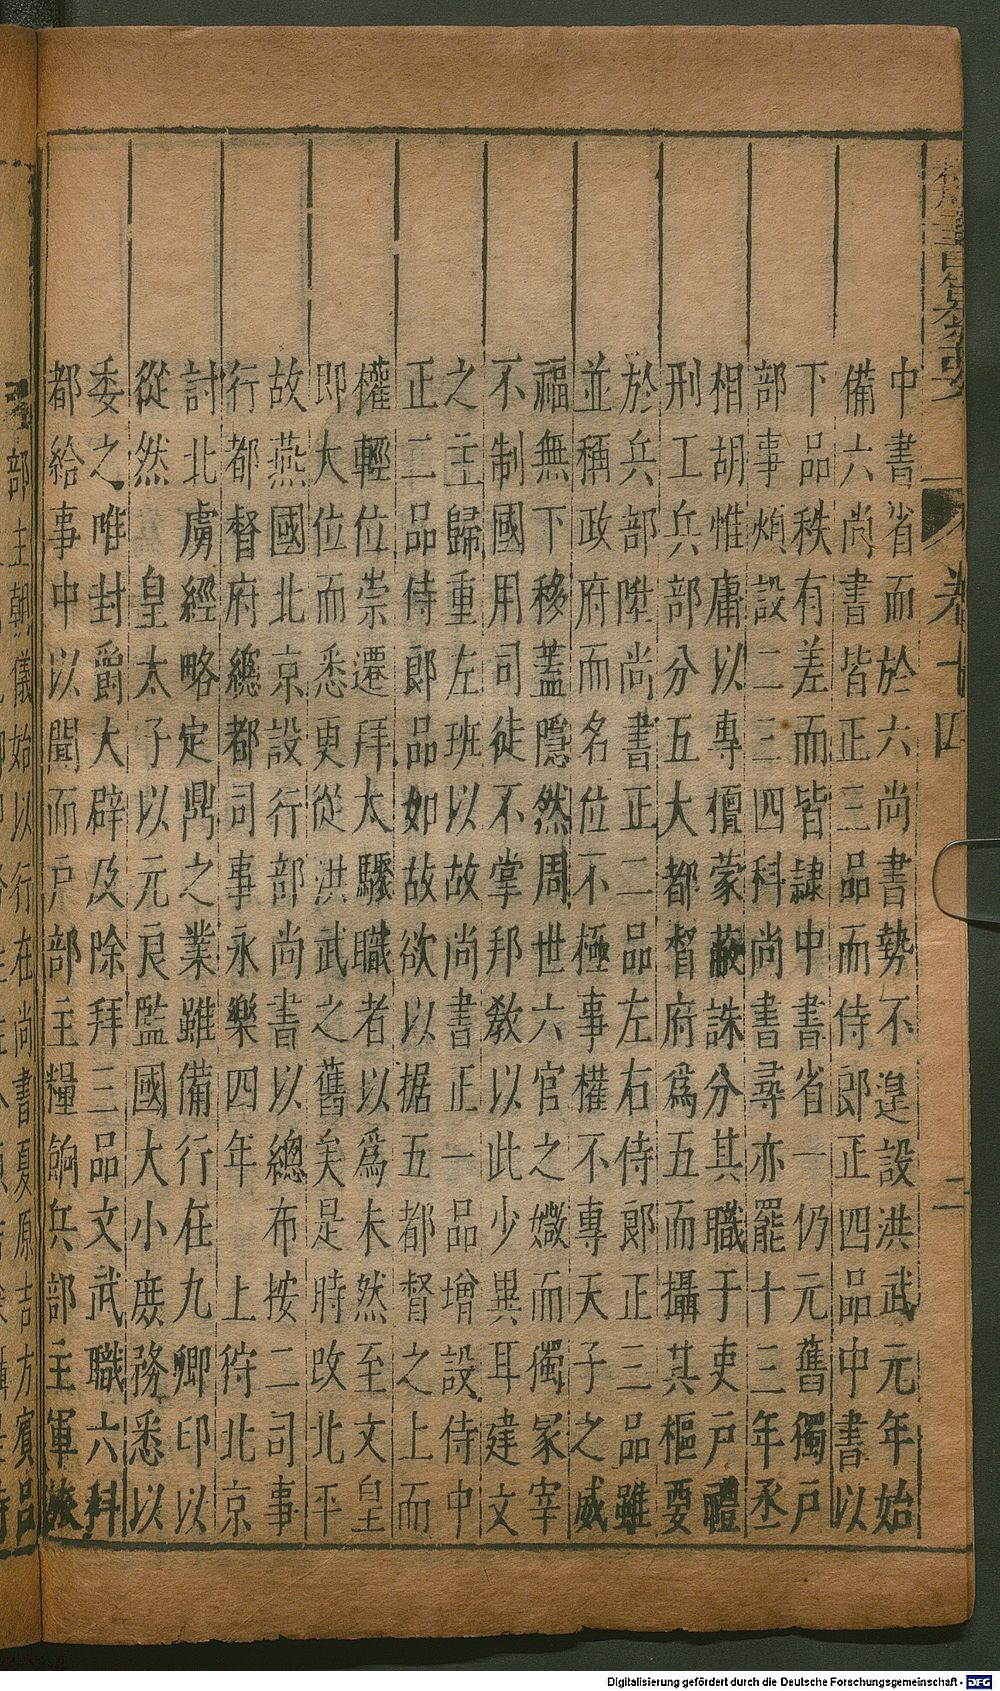 卷十四
二
中書省而於六尚書勢不遑設洪武元年始
備六尚書皆正三品而侍郎正四品中書以
下品秩有差而皆隷中書省一仍元舊獨戶
部事煩設二三四科尚書尋亦罷十三年丞
相胡惟庸以專擅蒙蔽誅分其職于吏戶禮
刑工兵部分五大都督府爲五而攝其樞要
於兵部陞尚書正二品左右侍郎正三品雖
並稱政府而名位不極事權不專天子之威
福無下移蓋隱然周世六官之媺而獨冢宰
不制國用司徒不掌邦敎以此少異耳建文
之主歸重左班以故尚書正一品增設侍中
正二品侍郎品如故欲以据五都督之上而
權輕位崇遷拜太驟職者以爲未然至文皇
即大位而悉更從洪武之舊美是時改北平
故燕國北京設行部尚書以總布按二司事
行都督府總都司事永樂四年上狩北京
討北虜經略定鼎之業雖備行在九卿印以
從然皇太子以元良監國大小庻務悉以
委之唯封爵大辟及除拜三品文武職六科
都給事中以聞而戶部主糧餉兵部主軍
部主朝儀始以行在尚書夏原吉方賓呂
Digitalisierung gefördert durch die Deutsche Forschungsgemeinschaft - DFG